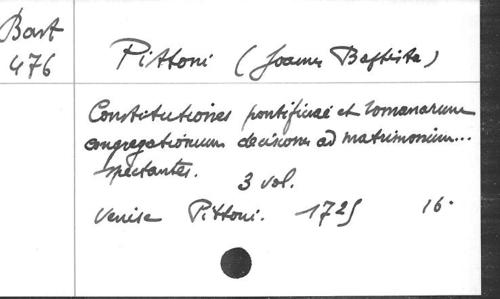 Bast
476
Pittoni (Joannes Baptista)
Constitutiones pontificiae et romanarum
congregationum decisiones ad matrimonium...
spectantes.
3 vol.
Venise Pittoni. 1725 16.